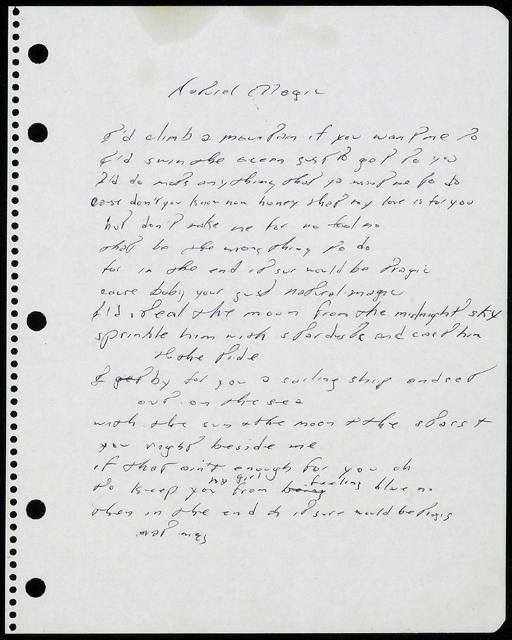 Natural Magic
I'd climb a mountain if you want me to
I'd swim the ocean just to get to you
I'd do most anything that ya want me to do
cause don't you know now honey that my love is for you
but don't make me for no fool no
that be the wrong thing to do
for in the end it sur would be tragic
cause baby your just natural magic
I'd steal the moon from the midnight sky
sprinkle him with stardust and cast him
to the tide
I get by for you a sailing ship and set
out on the sea
with the sun & the moon & the stars &
you right beside me
if that ain't enough for you oh
to keep you my girl from being feeling blue no
then in the end oh it sure would be tragic